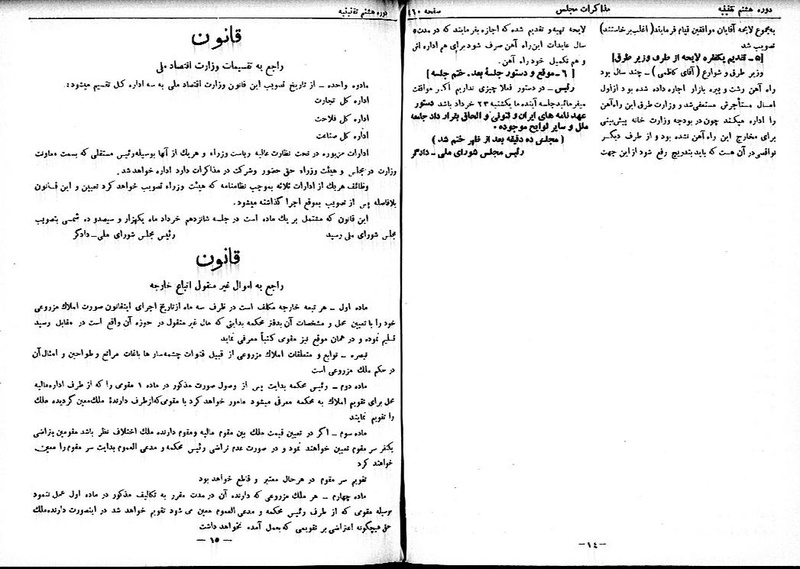 دوره هشتم تقنینیه
مذاکرات مجلس
صفحه ۴۱۰
بمجموع لایحه آقایان موافقین قیام فرمایند (اغلب برخاستند)
تصویب شد
[۵ - تقدیم یکفقره لایحه از طرف وزیر طرق]
وزیر طرق و شوارع (آقای کاظمی) - چند سال بود
راه آهن رشت و پیره بازار اجازه داده شده بود از اول
امسال مستأجرش مستعفی شد و وزارت طرق این راه آهن
را اداره میکند چون در بودجه وزارت خانه پیش بینی
برای مخارج این راه آهن نشده بود و از طرف دیگر
نواقصی در آن هست که باید بتدریج رفع شود از این جهت
لایحه تهیه و تقدیم شده که اجازه بفرمایند که در مدت ۵
سال عایدات این راه آهن صرف شود برای هم اداره آنی
و هم تکمیل خود راه آهن.
[۶ - موقع و دستور جلسه بعد. ختم جلسه]
رئیس - در دستور فعلا چیزی نداریم اگر موافقت
میفرمائید جلسه آینده ما یکشنبه ۲۳ خرداد باشد دستور
عهد نامه های ایران و لتونی و الحاق بقرار داد جامعه
ملل و سایر لوایح موجوده.
(مجلس ده دقیقه بعد از ظهر ختم شد)
رئیس مجلس شورای ملی - دادگر
- ۱٤ -
دوره هشتم تقنینیه
قانون
راجع به تقسیمات وزارت اقتصاد ملی
ماده واحده - از تاریخ تصویب این قانون وزارت اقتصاد ملی به سه اداره کل تقسیم میشود:
اداره کل تجارت
اداره کل فلاحت
اداره کل صناعت
ادارات مزبوره در تحت نظارت عالیه ریاست وزراء و هریک از آنها بوسیله رئیس مستقلی که بسمت معاونت
وزارت در مجلس و هیئت وزراء حق حضور و شرکت در مذاکرات دارد اداره خواهد شد.
وظائف هریک از ادارات ثلاثه بموجب نظامنامه که هیئت وزراء تصویب خواهد کرد تعیین و این قانون
بلافاصله پس از تصویب بموقع اجرا گذاشته میشود.
این قانون که مشتمل بر یک ماده است در جلسه شانزدهم خرداد ماه یکهزار و سیصد و ده شمسی بتصویب
مجلس شورای ملی رسید
رئیس مجلس شورای ملی - دادگر
قانون
راجع به اموال غیر منقول اتباع خارجه
ماده اول - هر تبعه خارجه مکلف است در ظرف سه ماه از تاریخ اجرای این قانون صورت املاک مزروعی
خود را با تعیین محل و مشخصات آن بدفتر محکمه بدایتی که مال غیر منقول در حوزه آن واقع است در مقابل رسید
تسلیم نموده و در همان موقع نیز مقومی کتباً معرفی نماید
تبصره - توابع و متعلقات املاک مزروعی از قبیل قنوات چشمه سار ها باغات مراتع و طواحین و امثال آن
در حکم ملک مزروعی است
ماده دوم - رئیس محکمه بدایت پس از وصول صورت مذکور در ماده ۱ مقومی را که از طرف اداره مالیه
محل برای تقویم املاک به محکمه معرفی میشود مأمور خواهد کرد با مقومی که از طرف دارندهٔ ملک معین گردیده ملک
را تقویم نمایند
ماده سوم - اگر در تعیین قیمت ملک بین مقوم مالیه و مقوم دارنده ملک اختلاف نظر باشد مقومین بتراضی
یکنفر سر مقوم تعیین خواهند نمود و در صورت عدم تراضی رئیس محکمه و مدعی العموم بدایت سر مقوم را معین
خواهند کرد
تقویم سر مقوم در هر حال معتبر و قاطع خواهد بود
ماده چهارم - هر ملک مزروعی که دارنده آن در مدت مقرر به تکالیف مذکور در ماده اول عمل ننمود
بوسیله مقومی که از طرف رئیس محکمه و مدعی العموم معین می شود تقویم خواهد شد در اینصورت دارنده ملک
حق هیچگونه اعتراضی بر تقویمی که بعمل آمده نخواهد داشت
- ۱۵ -